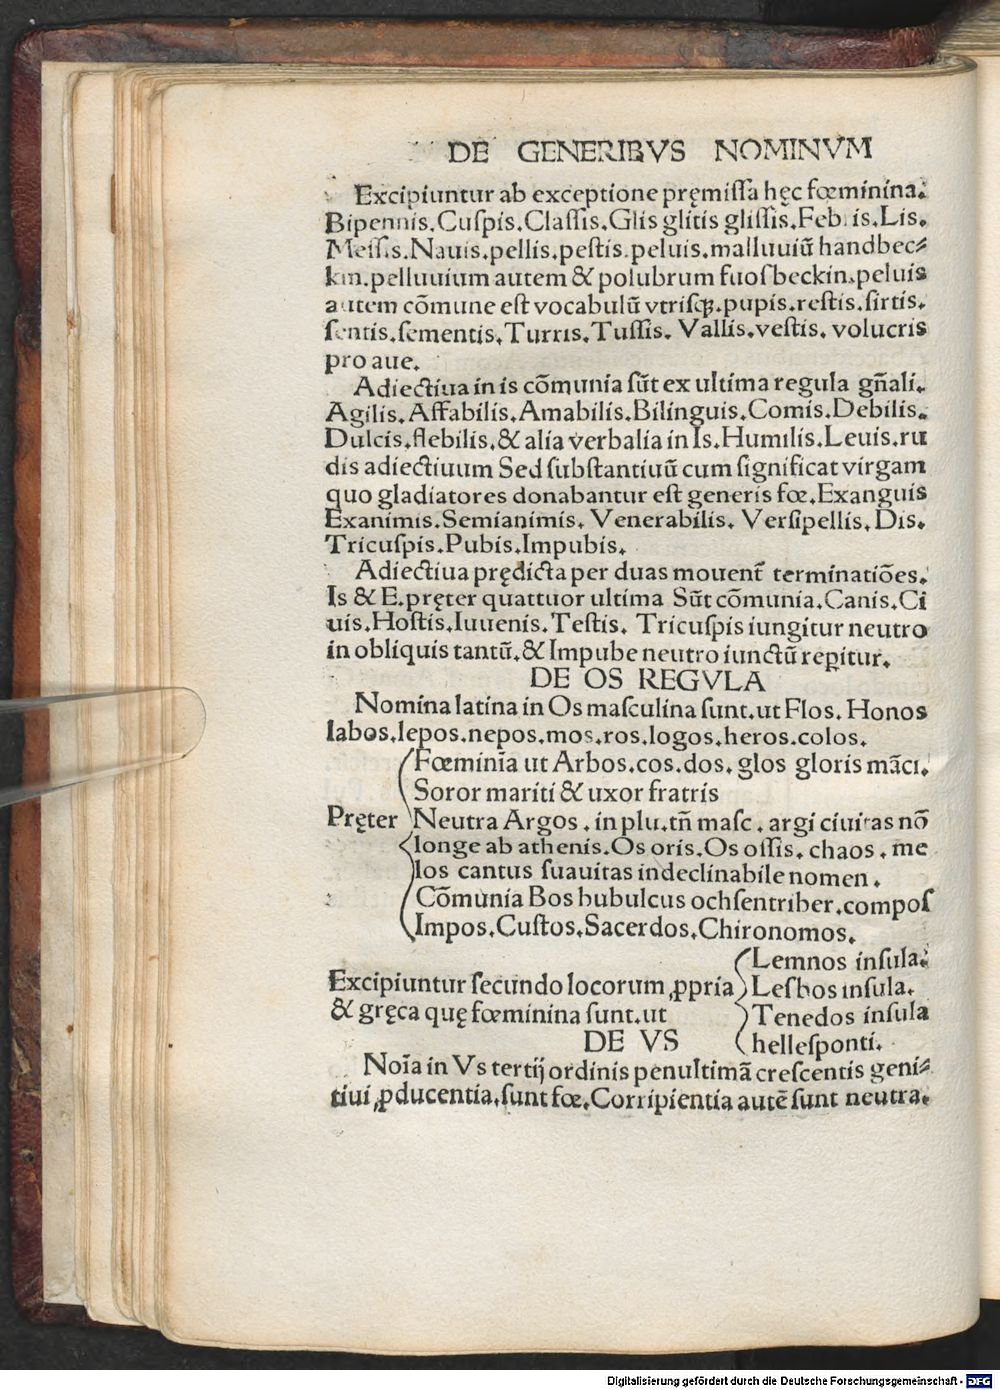 DE GENERIBVS NOMINVM
Excipiuntur ab exceptione pręmiſſa hęc fœminina.
Bipennis.Cuſpis.Claſſis.Glis glitis gliſſis.Febris.Lis.
Meſſis.Nauis.pellis.peſtis.peluis.malluuiū handbec⸗
kin.pelluuium autem & polubrum fuoſbeckin.peluis
autem cōmune eſt vocabulū vtriſqꝫ.pupis.reſtis.ſirtis.
ſentis.ſementis.Turris.Tuſſis. Vallis.veſtis. volucris
pro aue.
Adiectiua in is cōmunia ſūt ex ultima regula gn̄ali.
Agilis.Affabilis.Amabilis.Bilinguis.Comis.Debilis.
Dulcis.flebilis.& alia verbalia in Is.Humilis.Leuis.ru
dis adiectiuum Sed ſubſtantiuū cum ſignificat virgam
quo gladiatores donabantur eſt generis fœ.Exanguis
Exanimis.Semianimis. Venerabilis. Verſipellis. Dis.
Tricuſpis.Pubis.Impubis.
Adiectiua prędicta per duas mouent̄ terminatiōes.
Is & E.pręter quattuor ultima Sūt cōmunia.Canis.Ci
uis.Hoſtis.Iuuenis.Teſtis. Tricuſpis iungitur neutro
in obliquis tantū.& Impube neutro iunctū reꝑitur.
DE OS REGVLA
Nomina latina in Os maſculina ſunt.ut Flos. Honos
labos.lepos.nepos.mos.ros.logos.heros.colos.
Fœminīa ut Arbos.cos.dos. glos gloris māci.
Soror mariti & uxor fratris
Pręter Neutra Argos . in plu.tn̄ maſc . argi ciuitas nō
longe ab athenis.Os oris.Os oſſis. chaos . me
los cantus ſuauitas indeclinabile nomen .
Cōmunia Bos bubulcus ochſentriber.compoſ
Impos.Cuſtos.Sacerdos.Chironomos.
Lemnos inſula.
Excipiuntur ſecundo locorum ꝓpria Leſbos inſula.
& gręca quę fœminina ſunt.ut Tenedos inſula
DE VS helleſponti.
Noīa in Vs tertij ordinis penultimā creſcentis geni⸗
tiui ꝓducentia.ſunt fœ.Corripientia autē ſunt neutra.
Digitalisierung gefördert durch die Deutsche Forschungsgemeinschaft - DFG